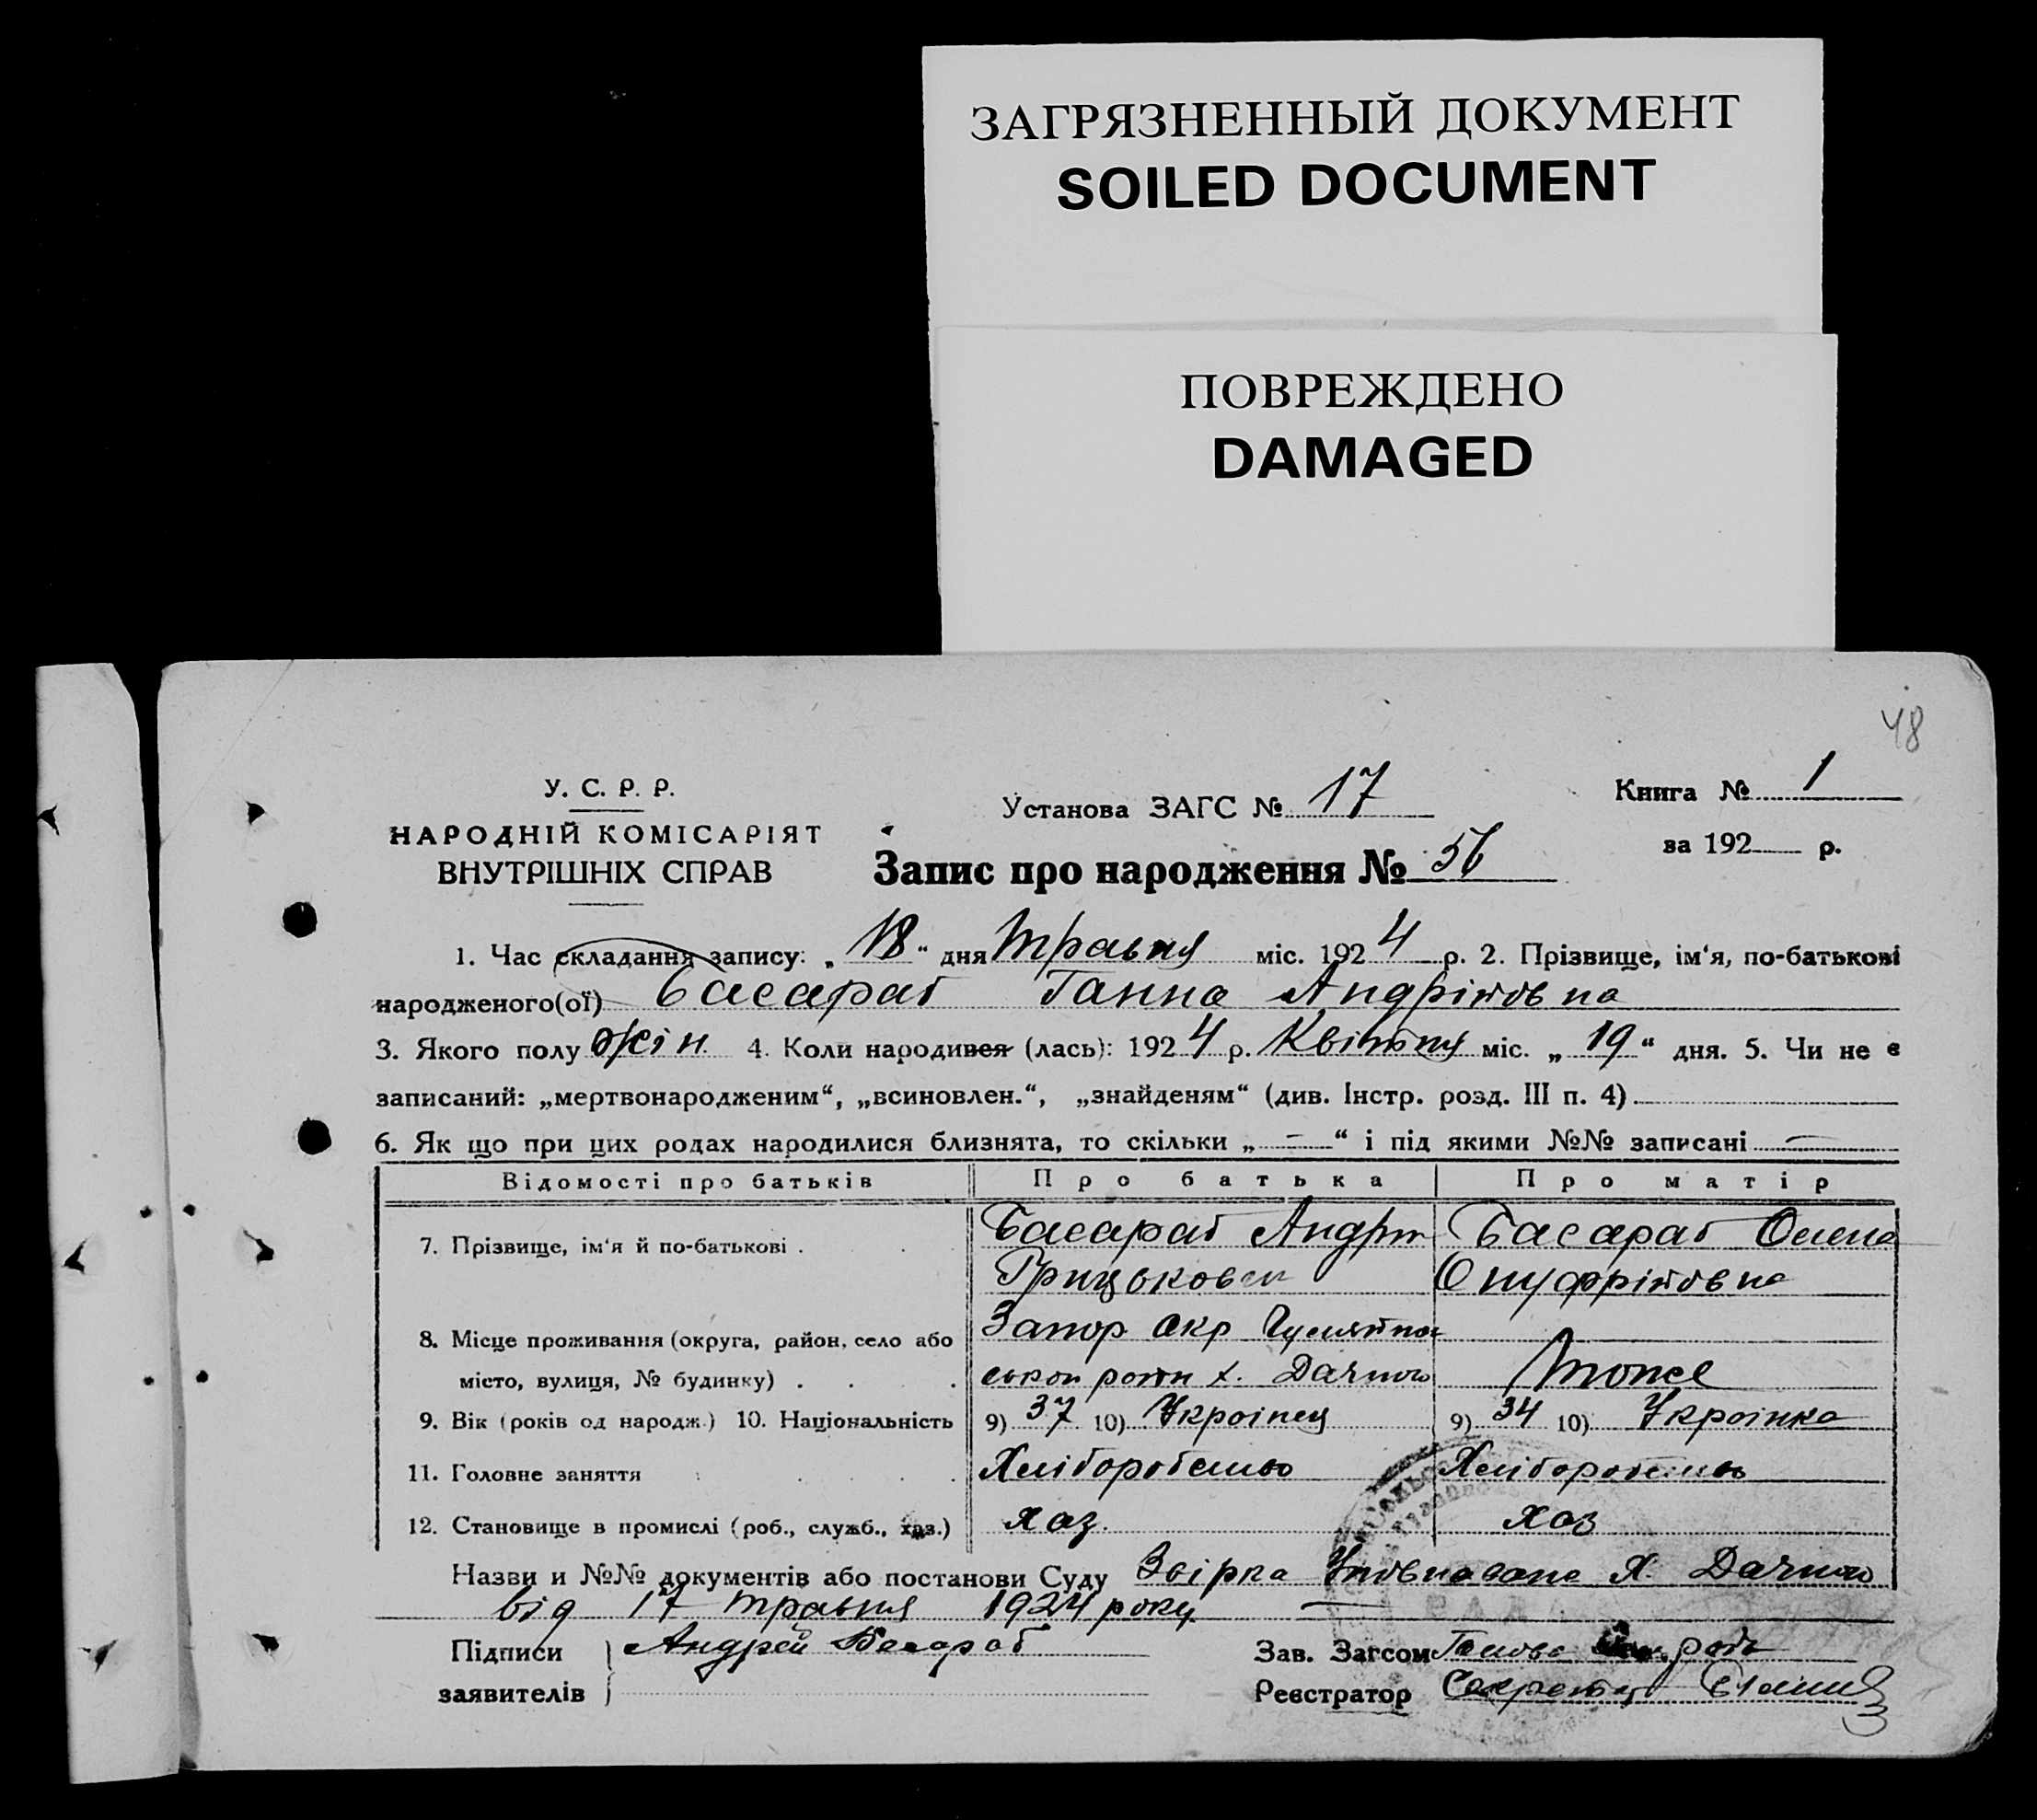 ЗАГРЯЗНЕННЫЙ ДОКУМЕНТ
SOILED DOCUMENT
ПОВРЕЖДЕНО
DAMAGED
48
У. С. Р. Р.
НАРОДНІЙ КОМІСАРІЯТ
ВНУТРІШНІХ СПРАВ
Установа ЗАГС № 17
Запис про народження № 56
Книга № 1
за 192 р.
1. Час складання запису: „ 18 “ дня Травня міс. 1924 р. 2. Прізвище, ім‘я, по-батькові
народженого(ої) Басараб Ганна Андріївна
3. Якого полу жін. 4. Коли народився (лась): 1924 р. Квітня міс. „ 19 “ дня. 5. Чи не є
записаний: „мертвонародженим“, „всиновлен.“, „знайденям“ (див. Інстр. розд. III п. 4)
6. Як що при цих родах народилися близнята, то скільки „ – “ і під якими №№ записані —
Відомості про батьків Про батька Про матір
7. Прізвище, ім‘я й по-батькові . Басараб Андрій Басараб Олена
Грицькович Онуфріївна
8. Місце проживання (округа, район, село або Запор окр
місто, вулиця, № будинку) . х. Дачного тоже
9. Вік (років од народж.) 10. Національність 9) 37 10) Україінец 9) 34 10) Українка
11. Головне заняття Хліборобство Хліборобство
12. Становище в промислі (роб., служб., хаз.) хаз. хаз
Назви и №№ документів або постанови Суду Звірка х. Дачного
від 17 травня 1924 року
Підписи Андрей Басараб
заявителів
Зав. Загсом Голова
Реєстратор Секретар